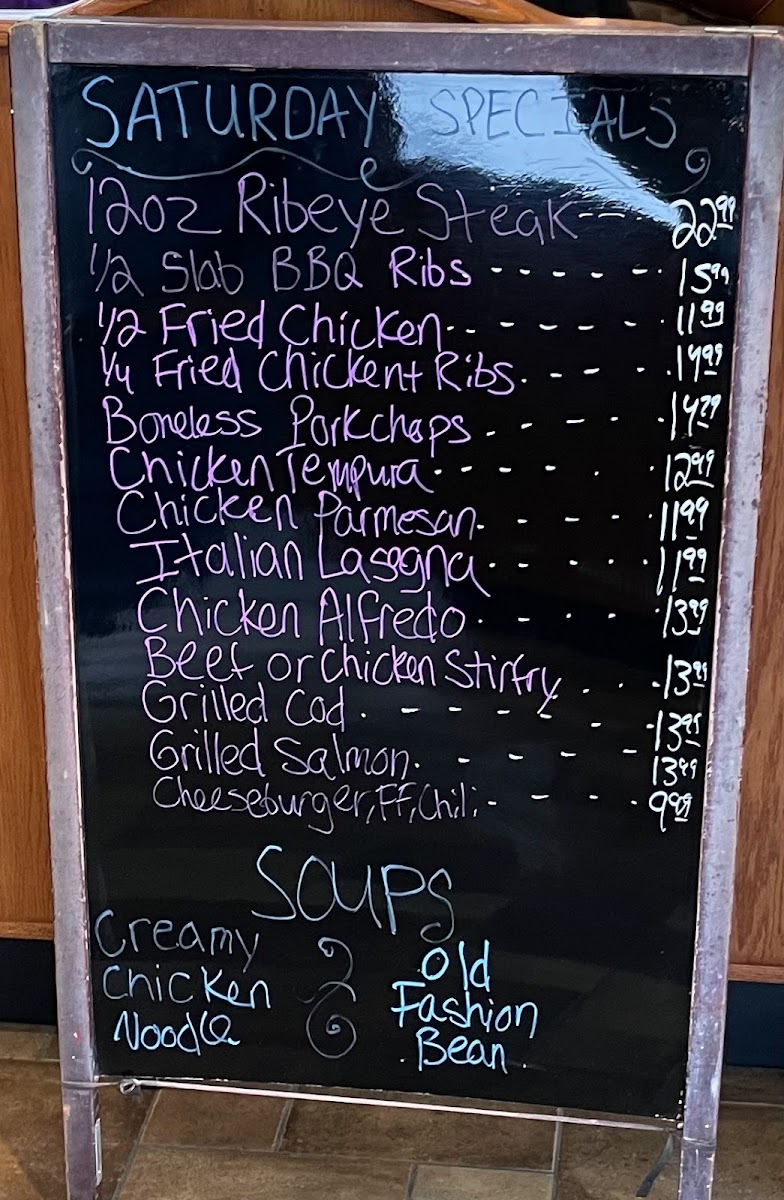 SATURDAY SPECIALS
12oz Ribeye Steak--- 22.99
1/2 Slab BBQ Ribs ------- 15.99
1/2 Fried Chicken------ 11.99
1/4 Fried Chicken+ Ribs.----- 14.99
Boneless Porkchops ----- 14.29
Chicken Tempura------ 12.99
Chicken Parmesan.----- 11.99
Italian Lasagna------ 11.99
Chicken Alfredo.----- 13.99
Beef or Chicken Stirfry ... 13.99
Grilled Cod.------- 13.99
Grilled Salmon.----- 13.99
Cheeseburger, FF, Chili ----- 9.99
SOUPS
Creamy
Chicken
Noodle
Old
Fashion
Bean